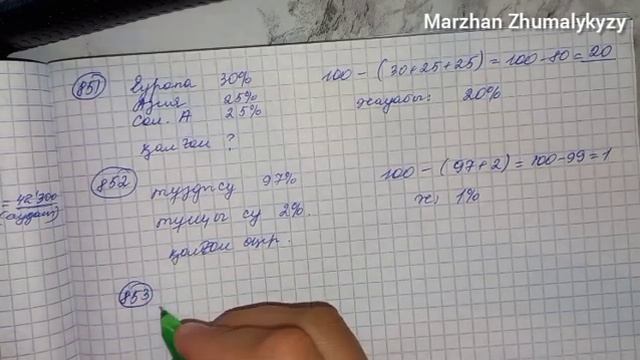 Marzhan Zhumalykyzy
851
Еуропа 30%
Азия 25%
Сол. А 25%
қалған ?
100 - (30+25+25) = 100-80 = 20
жауабы: 20%
= 42'300
852
тұздысу 97%
тұщы су 2%.
қалған
100 - (97+2) = 100-99 = 1
ж, 1%
853